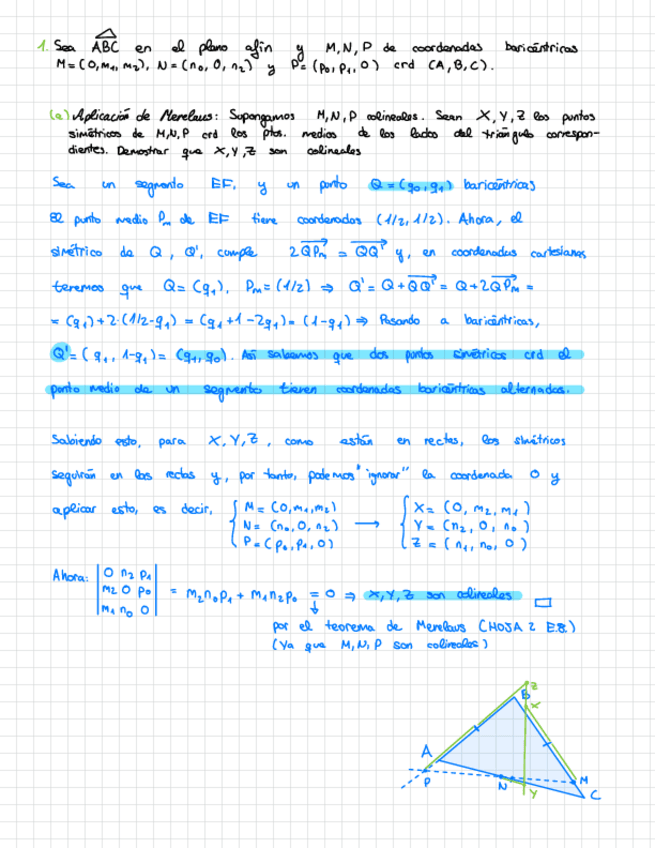 1. Sea ABC en el plano afín y M, N, P de coordenadas baricéntricas
M=(0,m₁,m₂), N=(n₀,0,n₂) y P=(p₀,p₁,0) crd (A,B,C).
(a) Aplicación de Menelaus: Supongamos M,N,P colineales. Sean X,Y,Z los puntos
simétricos de M,N,P crd los ptos. medios de los lados del triángulo correspon-
dientes. Demostrar que X,Y,Z son colineales
Sea un segmento EF, y un punto Q=(q₀,q₁) baricéntricas
El punto medio Pₘ de EF tiene coordenadas (1/2,1/2). Ahora, el
simétrico de Q, Q', cumple 2QPₘ = QQ' y, en coordenadas cartesianas
tenemos que Q=(q₁), Pₘ=(1/2) ⇒ Q'=Q+QQ'=Q+2QPₘ=
=(q₁)+2·(1/2-q₁)=(q₁+1-2q₁)=(1-q₁) ⇒ Pasando a baricéntricas,
Q'=(q₁,1-q₁)=(q₁,q₀). Así sabemos que dos puntos simétricos crd el
punto medio de un segmento tienen coordenadas baricéntricas alternadas.
Sabiendo esto, para X,Y,Z, como están en rectas, los simétricos
seguirán en las rectas y, por tanto, podemos "ignorar" la coordenada 0 y
aplicar esto, es decir, { M=(0,m₁,m₂) → { X=(0,m₂,m₁)
N=(n₀,0,n₂) Y=(n₂,0,n₀)
P=(p₀,p₁,0) Z=(n₁,n₀,0)
Ahora: |0 n₂ p₁|
|m₂ 0 p₀| = m₂n₀p₁ + m₁n₂p₀ = 0 ⇒ X,Y,Z son colineales □
|m₁ n₀ 0| ↓
por el teorema de Menelaus (HOJA 2 E.8.)
(Ya que M,N,P son colineales)
Z
B
X
A
P
N
M
Y
C